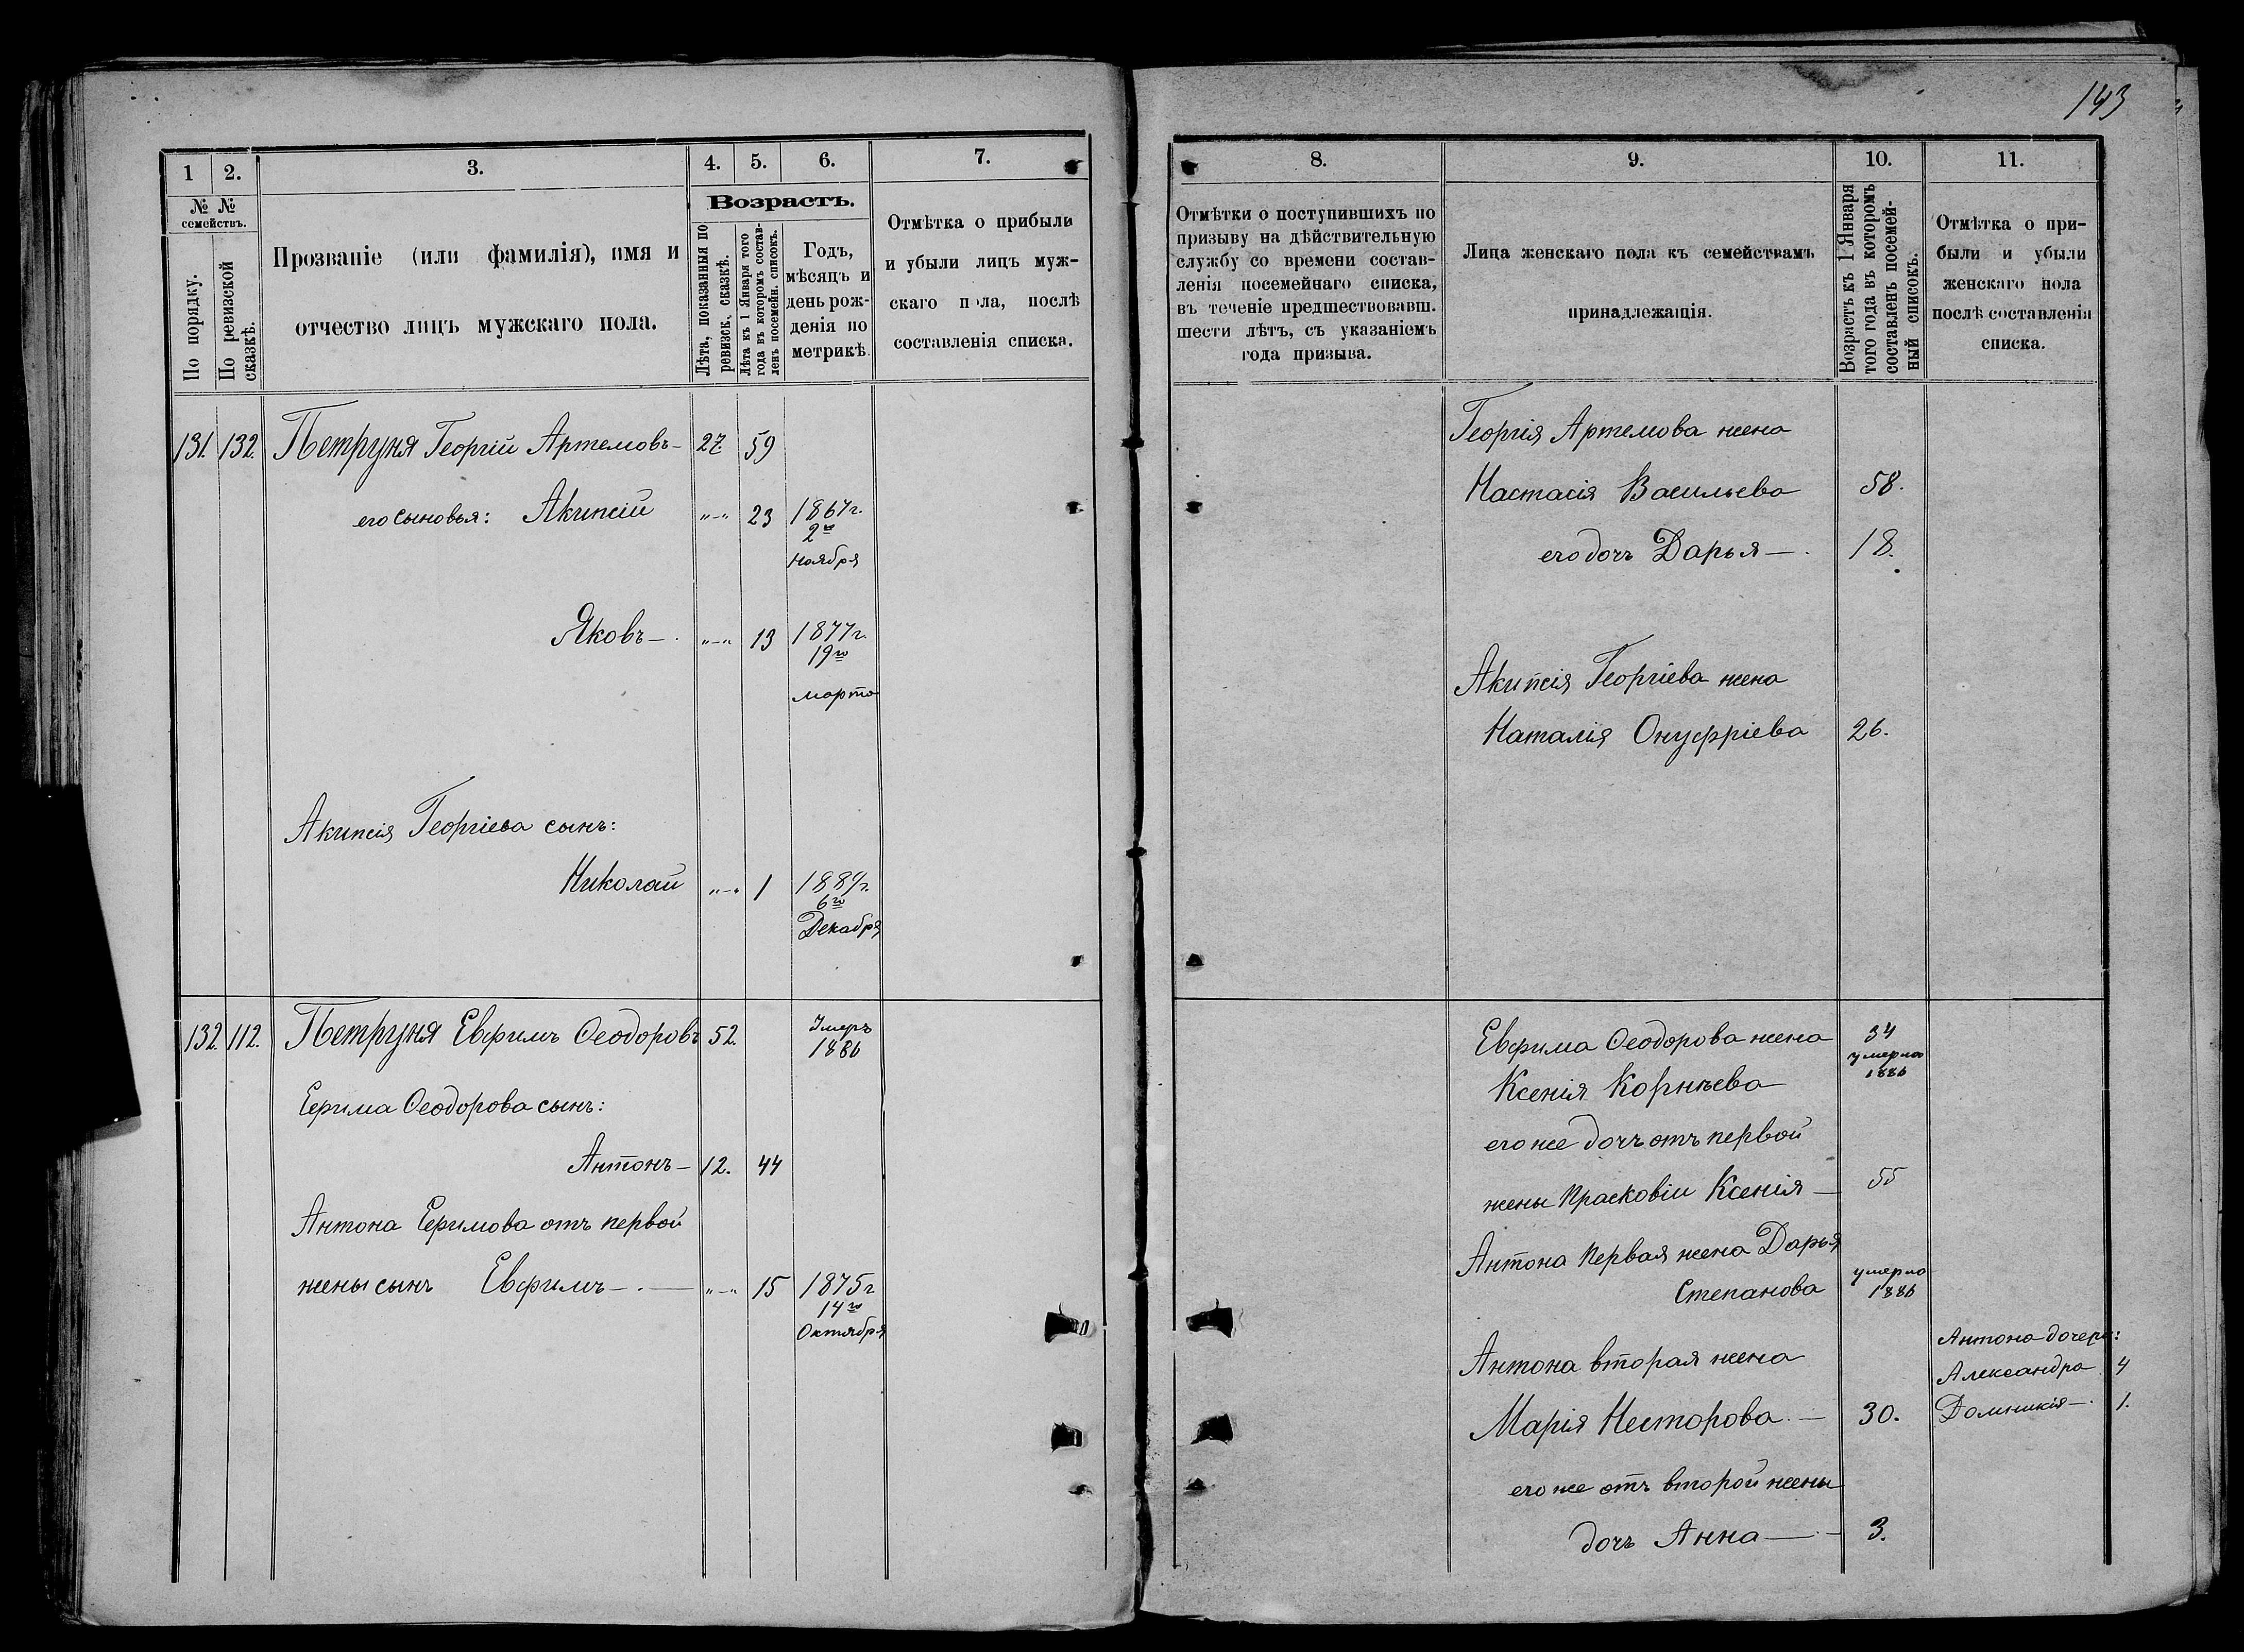 143
1
2.
3.
4.
5.
6.
7.
№ №
семействъ.
По порядку.
По ревизской
сказкѣ.
Прозваніе (или фамилія), имя и
отчество лицъ мужскаго пола.
Возрастъ.
Лѣта, показанныя по
ревизск. сказкѣ.
Лѣта къ 1 Января того
года въ которомъ состав-
ленъ посемейн. списокъ.
Годъ,
мѣсяцъ и
день рож-
денія по
метрикѣ.
Отмѣтка о прибыли
и убыли лицъ муж-
скаго пола, послѣ
составленія списка.
131. 132. Петруня Георгій Артемовъ— 27 59
его сыновья: Акипсій „—„ 23 1867 г.
2го
ноября
Яковъ—. „—„ 13 1877 г.
19го
марта
Акипсія Георгіева сынъ:
Николай „—„ 1 1889 г.
6го
Декабря
132. 112. Петруня Евфимъ Ѳеодоровъ 52. Умеръ
1886
Ефима Ѳеодорова сынъ:
Антонъ— 12. 44
Антона Ефимова отъ первой
жены сынъ Евфимъ—.— „—„ 15 1875 г
14го
Октября
8.
9.
10.
11.
Отмѣтки о поступившихъ по
призыву на дѣйствительную
службу со времени состав-
ленія посемейнаго списка,
въ теченіе предшествовавш.
шести лѣтъ, съ указаніемъ
года призыва.
Лица женскаго пола къ семействамъ
принадлежащія.
Возрастъ къ 1 Января
того года въ которомъ
составленъ посемей-
ный списокъ.
Отмѣтка о при-
были и убыли
женскаго пола
послѣ составленія
списка.
Георгія Артемова жена
Настасія Васильева 58.
его дочь Дарья—. 18.
Акипсія Георгіева жена
Наталія Онуфріева 26.
Евфима Ѳеодорова жена 34
умерла
1886
Ксенія Корнѣева
его же дочь отъ первой
жены Прасковіи Ксенія— 55
Антона Первая жена Дарья
Степанова умерла
1886
Антона вторая жена
Марія Несторова.— 30.
его же отъ второй жены
дочь Анна—.— 3.
Антона дочери:
Александра 4
Домникія—. 1.